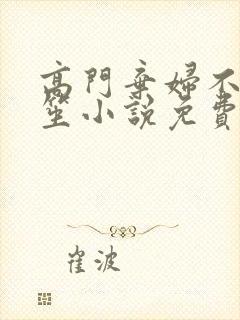 高門棄婦不
笙小說免費
崔波